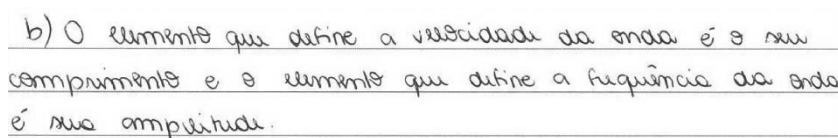 b) O elemento que define a velocidade da onda é o seu
comprimento e o elemento que define a frequência da onda
é sua amplitude.